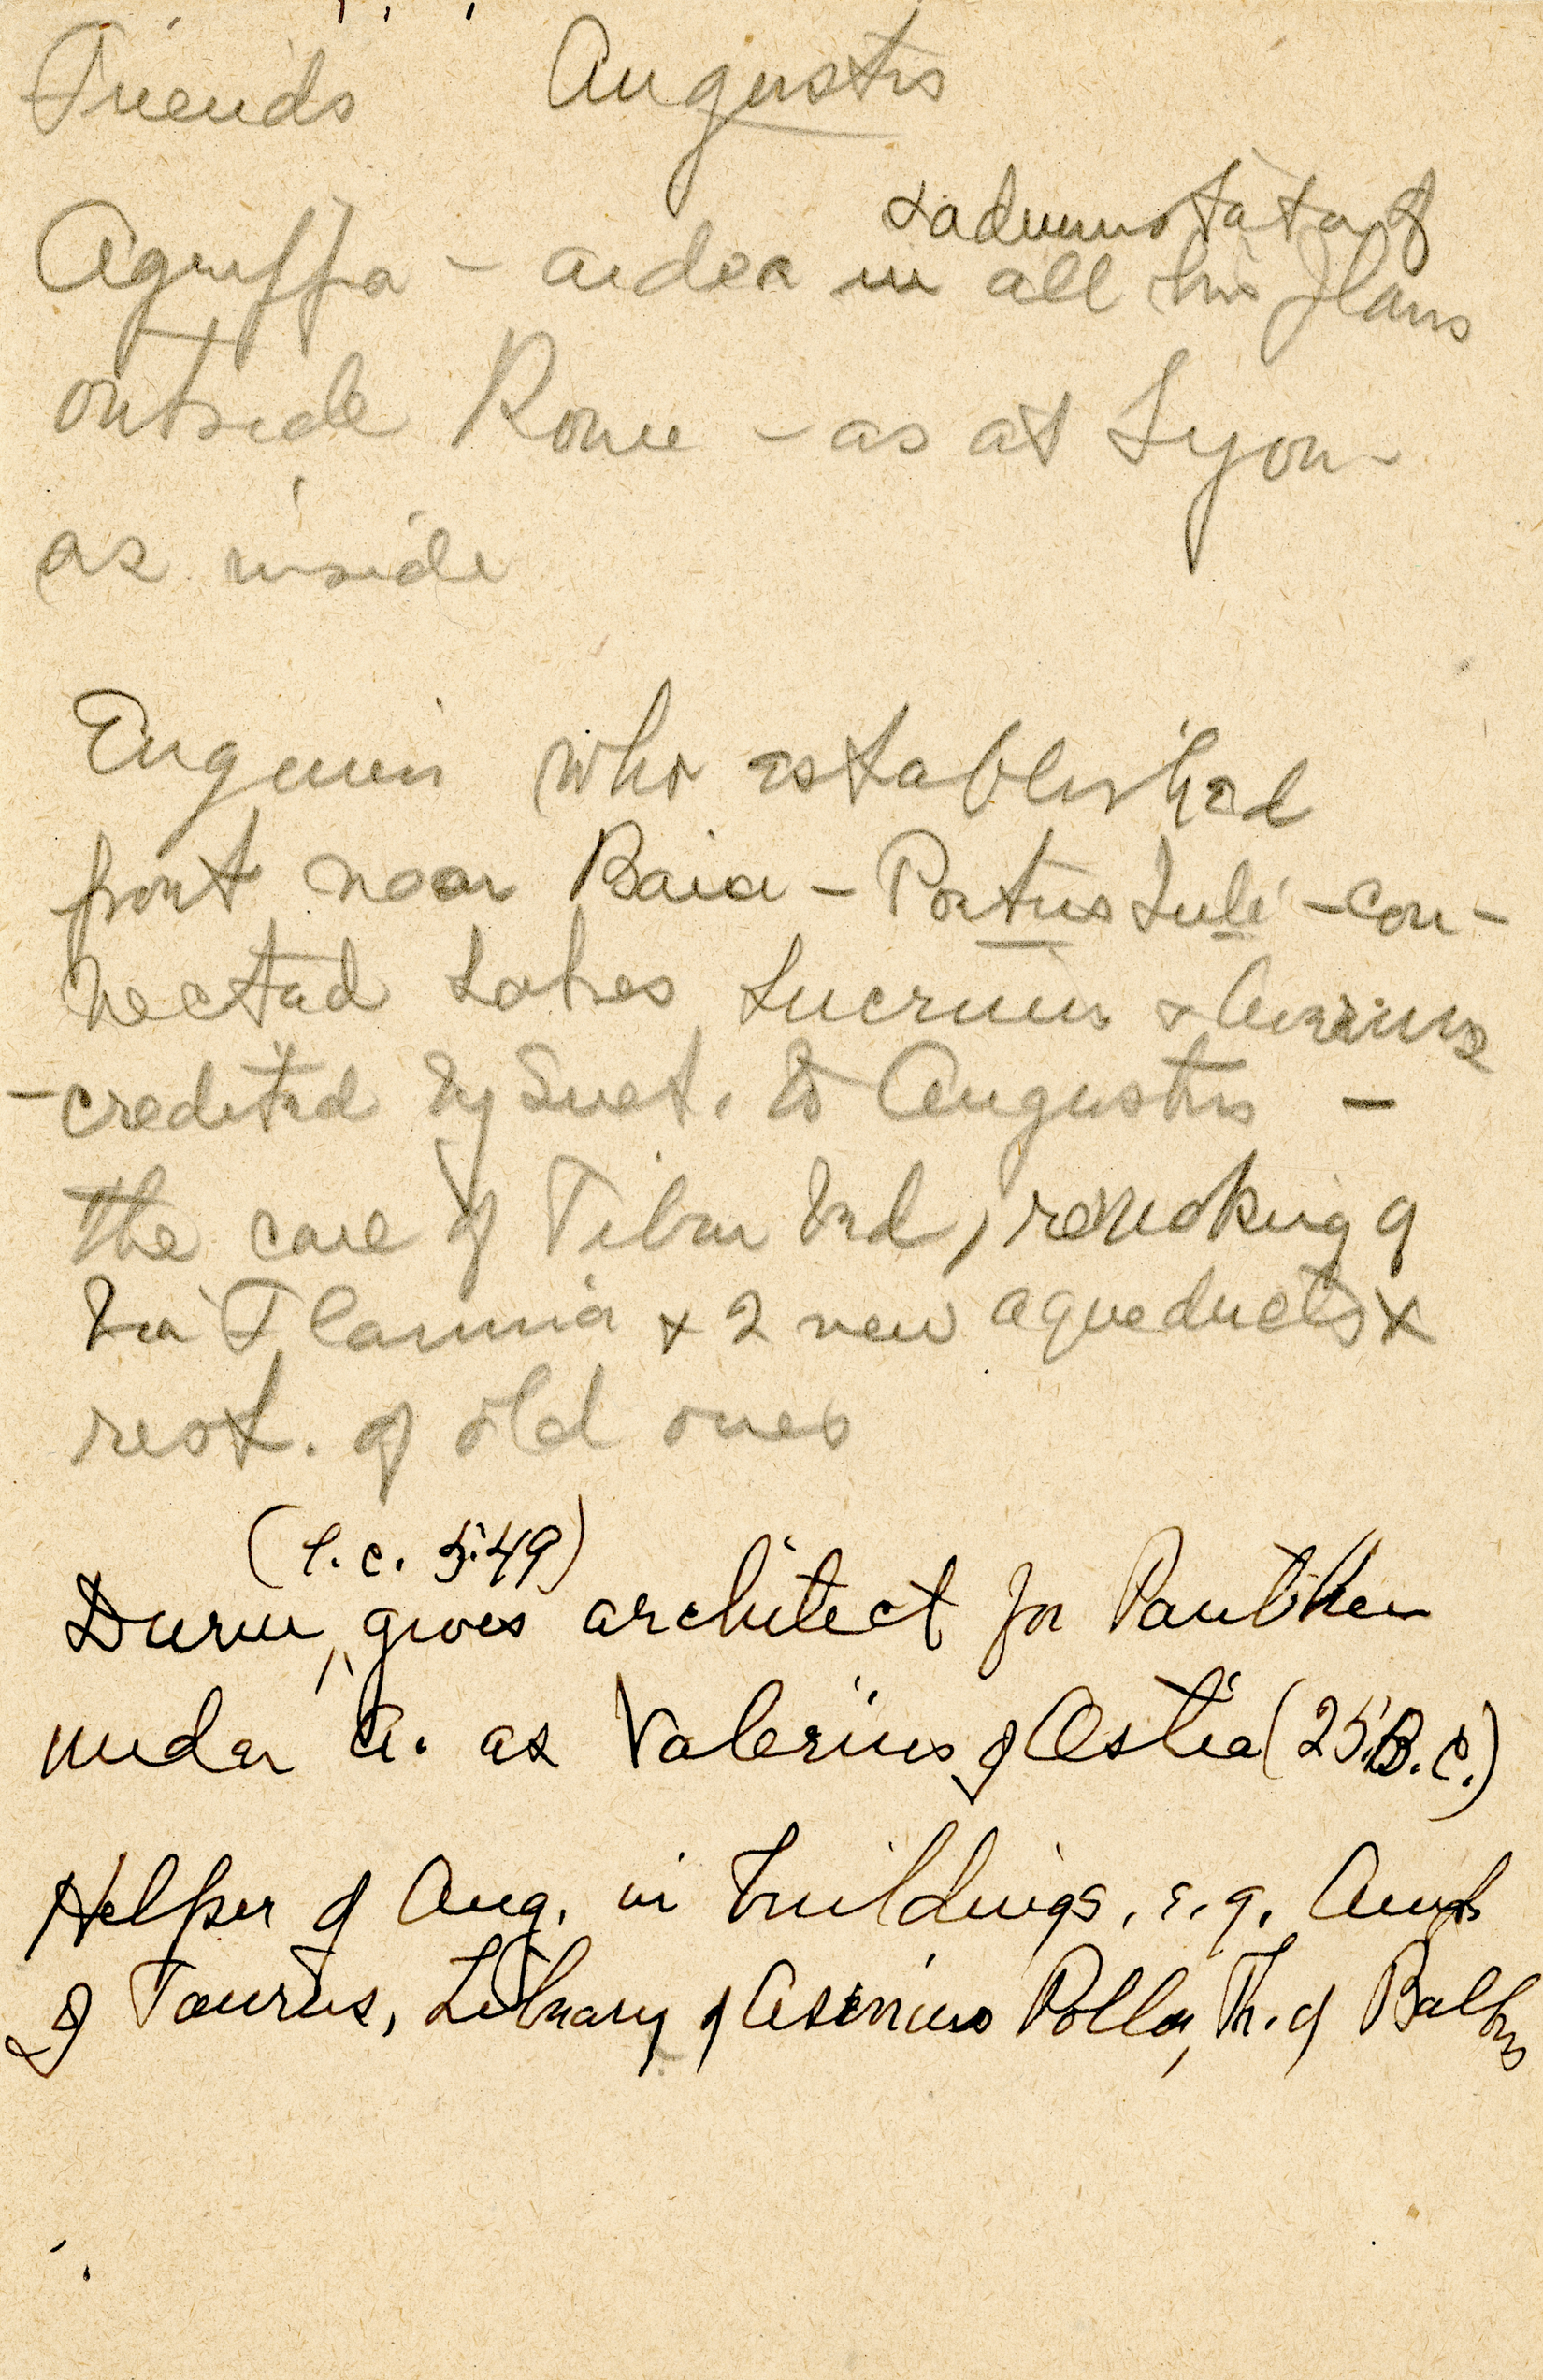 Friends Augustus
& administrator of
Agrippa - aider in all his plans
outside Rome - as at Lyon
as inside
Engineer who established
port near Baia - Portus Juli - con-
nected Lakes Lucrinus & Avernus
- credited by Suet. to Augustus -
the care of Tiber bed, remaking of
Via Flaminia & 2 new aqueducts &
rest. of old ones
(l.c. 549)
Durm, gives architect for Pantheon
under A. as Valerius of Ostia (25 B.C.)
Helper of Aug. in buildings, e.g. Amph
of Taurus, Library of Asinius Pollio, Th. of Balbus